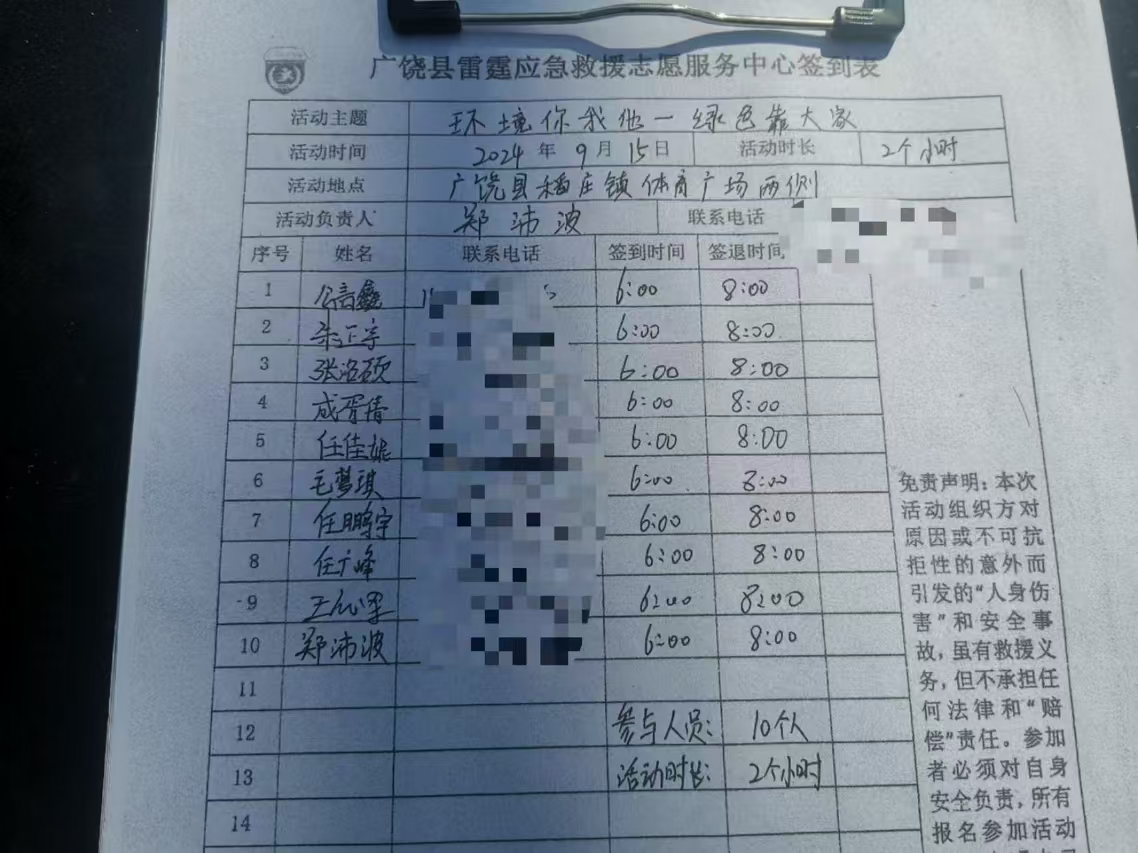 广饶县雷霆应急救援志愿服务中心签到表
活动主题 环境你我他一绿色靠大家
活动时间 2024年9月15日 活动时长 2个小时
活动地点 广饶县稻庄镇体育广场两侧
活动负责人 郑沛波 联系电话
序号 姓名 联系电话 签到时间 签退时间
1 6:00 8:00
2 6:00 8:00
3 张洛硕 6:00 8:00
4 成胥倩 6:00 8:00
5 任佳妮 6:00 8:00
6 毛梦琪 6:00 8:00
7 任鹏宇 6:00 8:00
8 任广峰 6:00 8:00
9 6:00 8:00
10 郑沛波 6:00 8:00
11
12 参与人员: 10个人
13 活动时长: 2个小时
14
免责声明:本次
活动组织方对
原因或不可抗
拒性的意外而
引发的“人身伤
害”和安全事
故,虽有救援义
务,但不承担任
何法律和“赔
偿”责任。参加
者必须对自身
安全负责,所有
报名参加活动